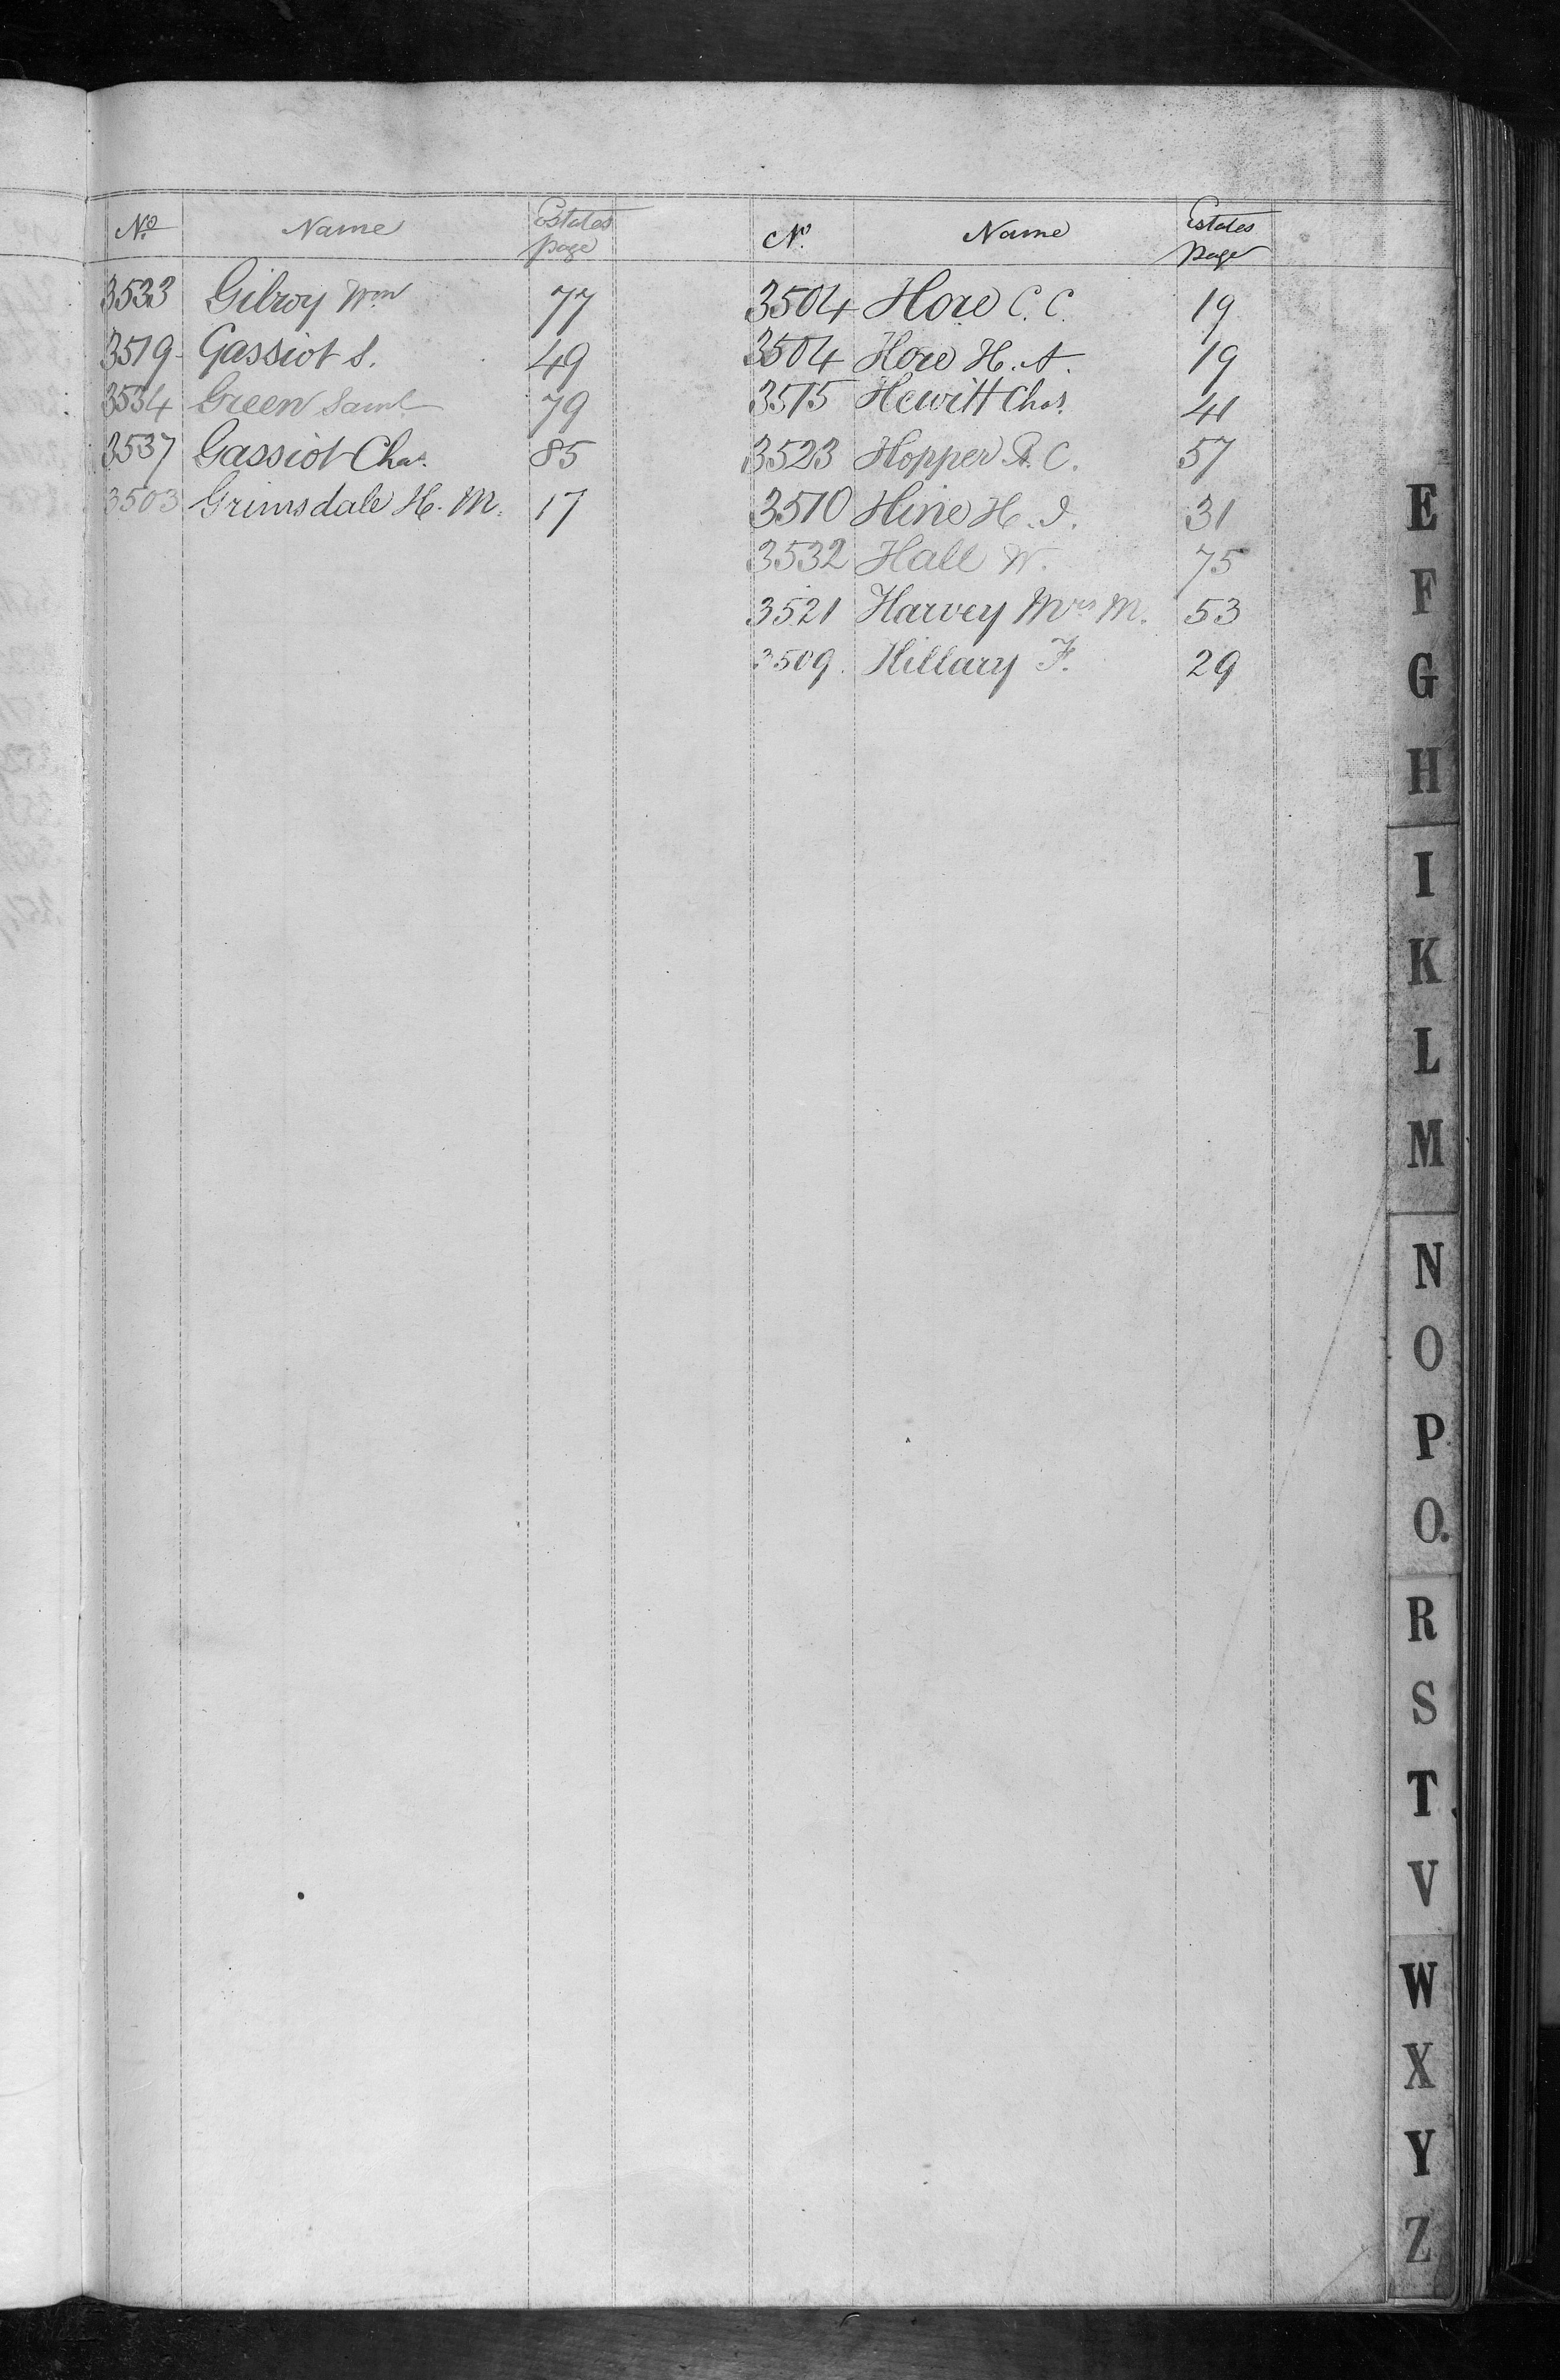 No. Name Estates page
3533 Gilroy Wm 77
3519 Gassiot S. 49
3534 Green Saml 79
3537 Gassiot Chas. 85
3503 Grimsdale H. M. 17
No. Name Estates page
3504 Hore C. C. 19
3504 Hore H. A. 19
3515 Hewitt Chas. 41
3523 Hopper R. C. 57
3510 Hine H. J. 31
3532 Hall W. 75
3521 Harvey Mrs M. 53
3509 Hillary F. 29
E
F
G
H
I
K
L
M
N
O
P
Q
R
S
T
V
W
X
Y
Z